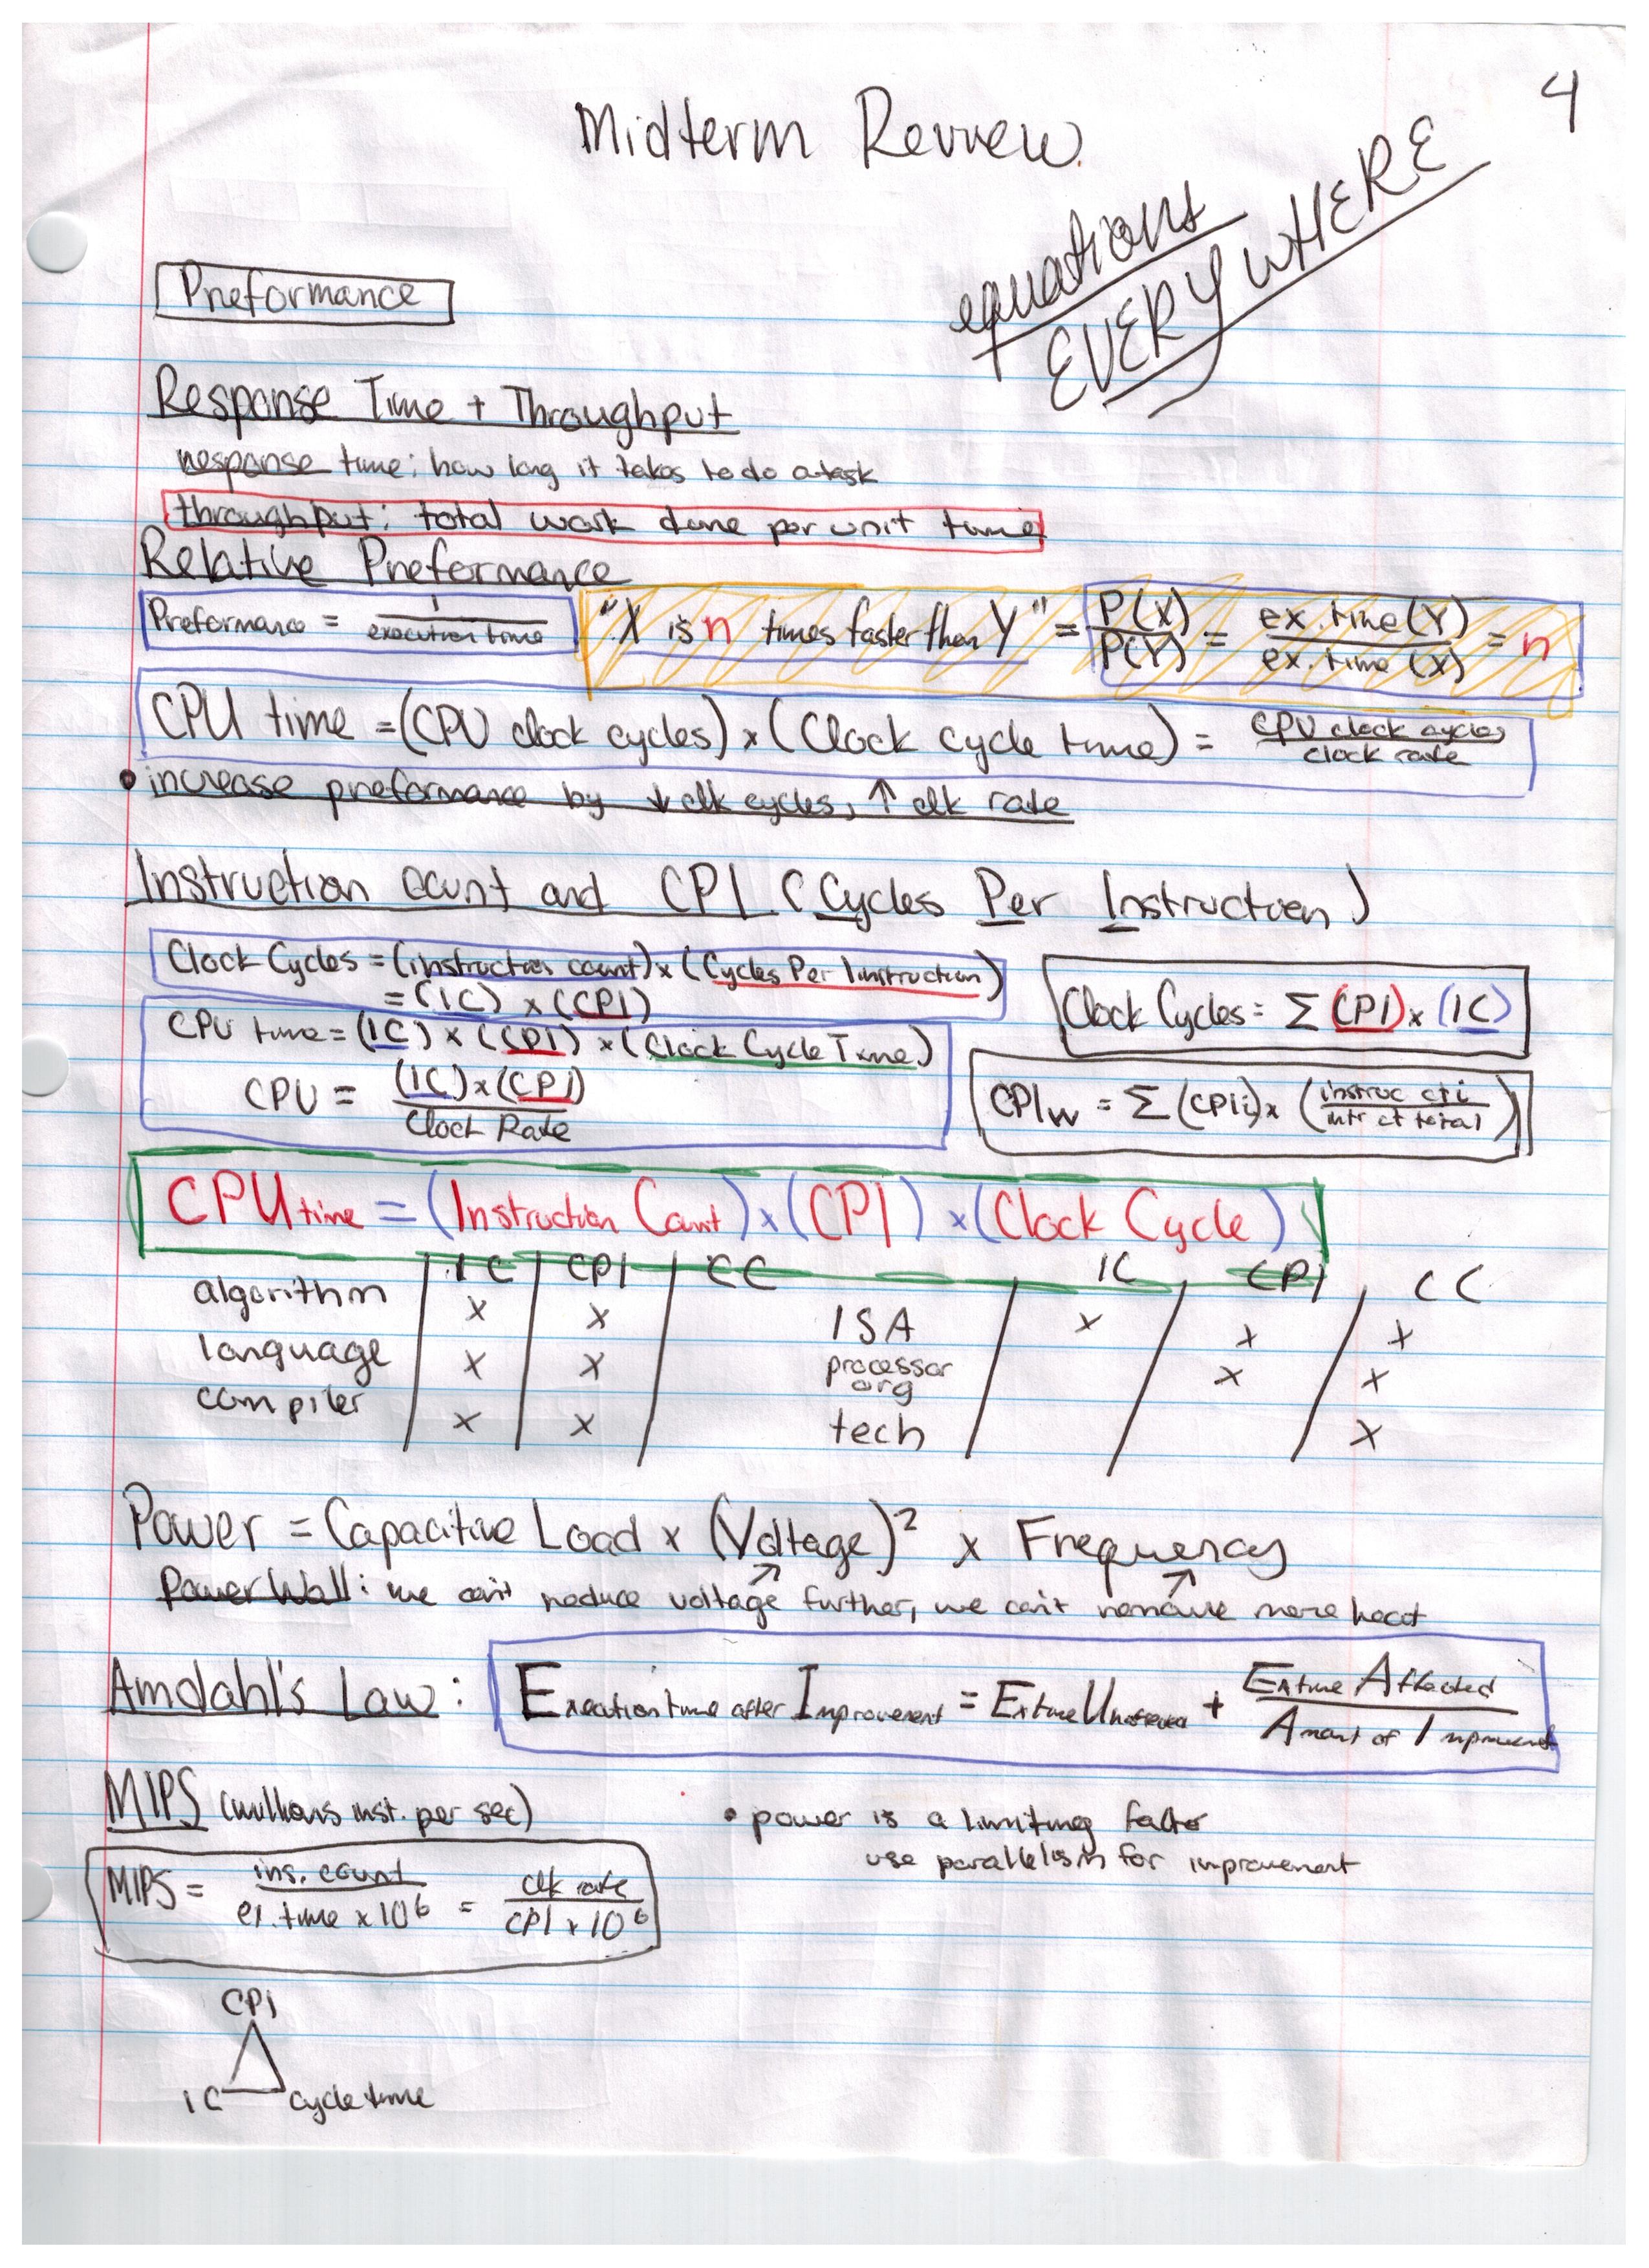 4
Midterm Review.
equations
EVERYWHERE
Preformance
Response Time + Throughput
response time: how long it takes to do a task
throughput: total work done per unit time
Relative Preformance
Preformance = 1 / execution time
"X is n times faster than Y" = P(X) / P(Y) = ex. time (Y) / ex. time (X) = n
CPU time = (CPU clock cycles) x (Clock cycle time) = CPU clock cycles / clock rate
• increase preformance by ↓ clk cycles, ↑ clk rate
Instruction Count and CPI (Cycles Per Instruction)
Clock Cycles = (instruction count) x (Cycles Per Instruction)
= (IC) x (CPI)
Clock Cycles = Σ (CPI) x (IC)
CPU time = (IC) x (CPI) x (Clock Cycle Time)
CPU = (IC) x (CPI) / Clock Rate
CPIw = Σ (CPIi) x (instruc cti / intr ct total)
CPU time = (Instruction Count) x (CPI) x (Clock Cycle)
IC CPI CC IC CPI CC
algorithm x x ISA x x x
language x x processor org x x
compiler x x tech x
Power = Capacitive Load x (Voltage)² x Frequency
Power Wall: we can't reduce voltage further, we can't remove more heat
Amdahl's Law: Execution time after Improvement = Ex time Unaffected + Ex time Affected / Amount of Improvement
MIPS (millions inst. per sec)
• power is a limiting factor
use parallelism for improvement
MIPS = ins. count / ex. time x 10⁶ = clk rate / CPI x 10⁶
CPI
IC cycle time